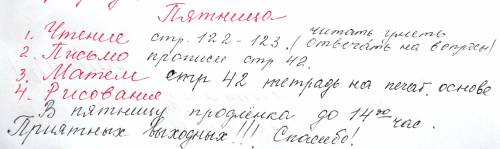 Пятница
1. Чтение стр. 122-123. (читать уметь отвечать на вопросы)
2. Письмо прописи стр 42.
3. Матем стр 42 тетрадь на печат. основе
4. Рисование
В пятницу продлёнка до 14⁰⁰ час.
Приятных выходных!!! Спасибо!